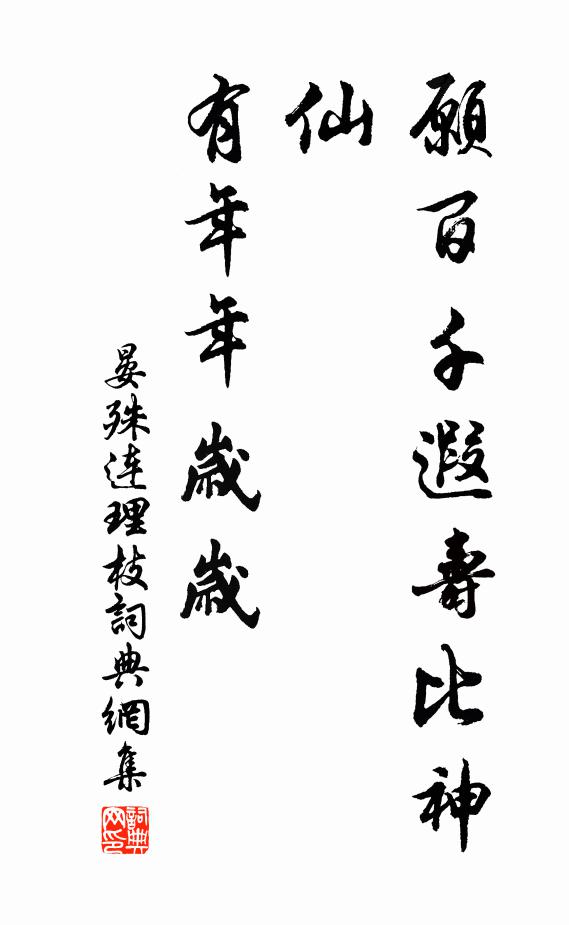 願百千遐壽比神
仙
有年年歲歲
晏殊連理枝詞典網集
詞典网印